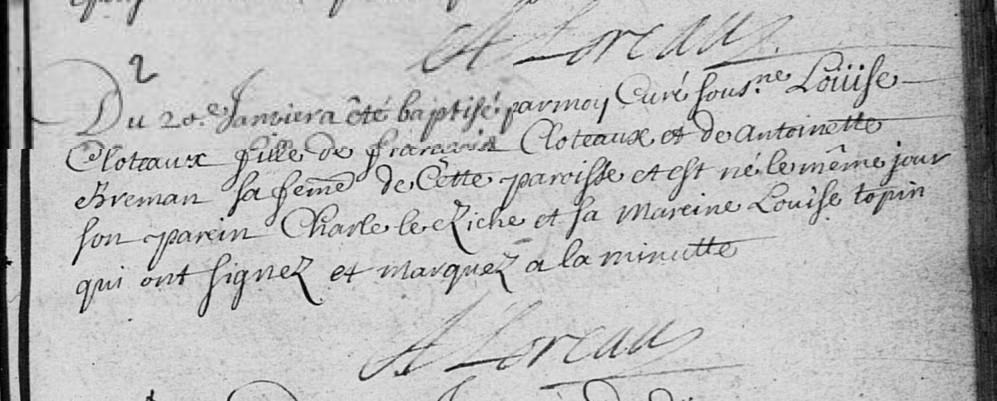 A Loreau
2
Du 20.e Janvier a êté baptisé par moy Curé sous.né Loüise
Cloteaux fille de francois Cloteaux et de Antoinette
Breman sa feme de Cette paroisse et est né le même jour
son parein Charle le Riche et sa Mareine Louise topin
qui ont signez et marquez a la minutte
A Loreau